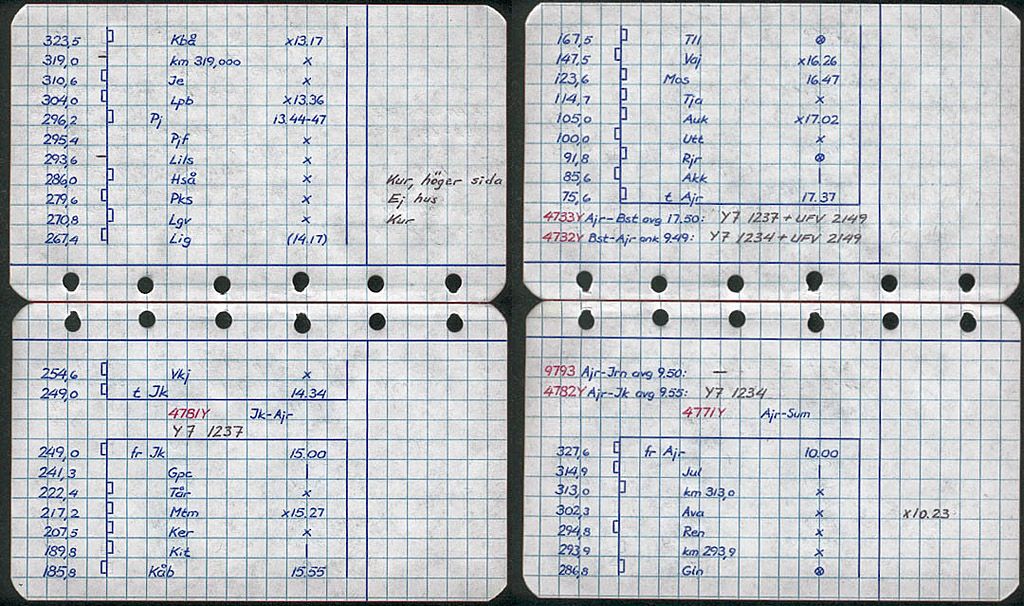 323,5 Kbå x13.17
319,0 km 319,000 x
310,6 Je x
304,0 Lpb x13.36
296,2 Pj 13.44-47
295,4 Pjf x
293,6 Lils x
286,0 Hså x Kur, höger sida
279,6 Pks x Ej hus
270,8 Lgv x Kur
267,4 Lig (14.17)
254,6 Vkj x
249,0 t Jk 14.34
4781Y Jk-Ajr
Y7 1237
249,0 fr Jk 15.00
241,3 Gpc |
222,4 Tår x
217,2 Mtm x15.27
207,5 Ker x
189,8 Kit |
185,8 Kåb 15.55
167,5 Tll ⊗
147,5 Vaj x16.26
123,6 Mos 16.47
114,7 Tja x
105,0 Auk x17.02
100,0 Utt x
91,8 Rjr ⊗
85,6 Akk |
75,6 t Ajr 17.37
4733Y Ajr-Bst avg 17.50: Y7 1237 + UFV 2149
4732Y Bst-Ajr ank 9.49: Y7 1234 + UFV 2149
9793 Ajr-Jrn avg 9.50: —
4782Y Ajr-Jk avg 9.55: Y7 1234
4771Y Ajr-Sum
327,6 fr Ajr 10.00
314,9 Jul |
313,0 km 313,0 x
302,3 Ava x x10.23
294,8 Ren x
293,9 km 293,9 x
286,8 Gln ⊗